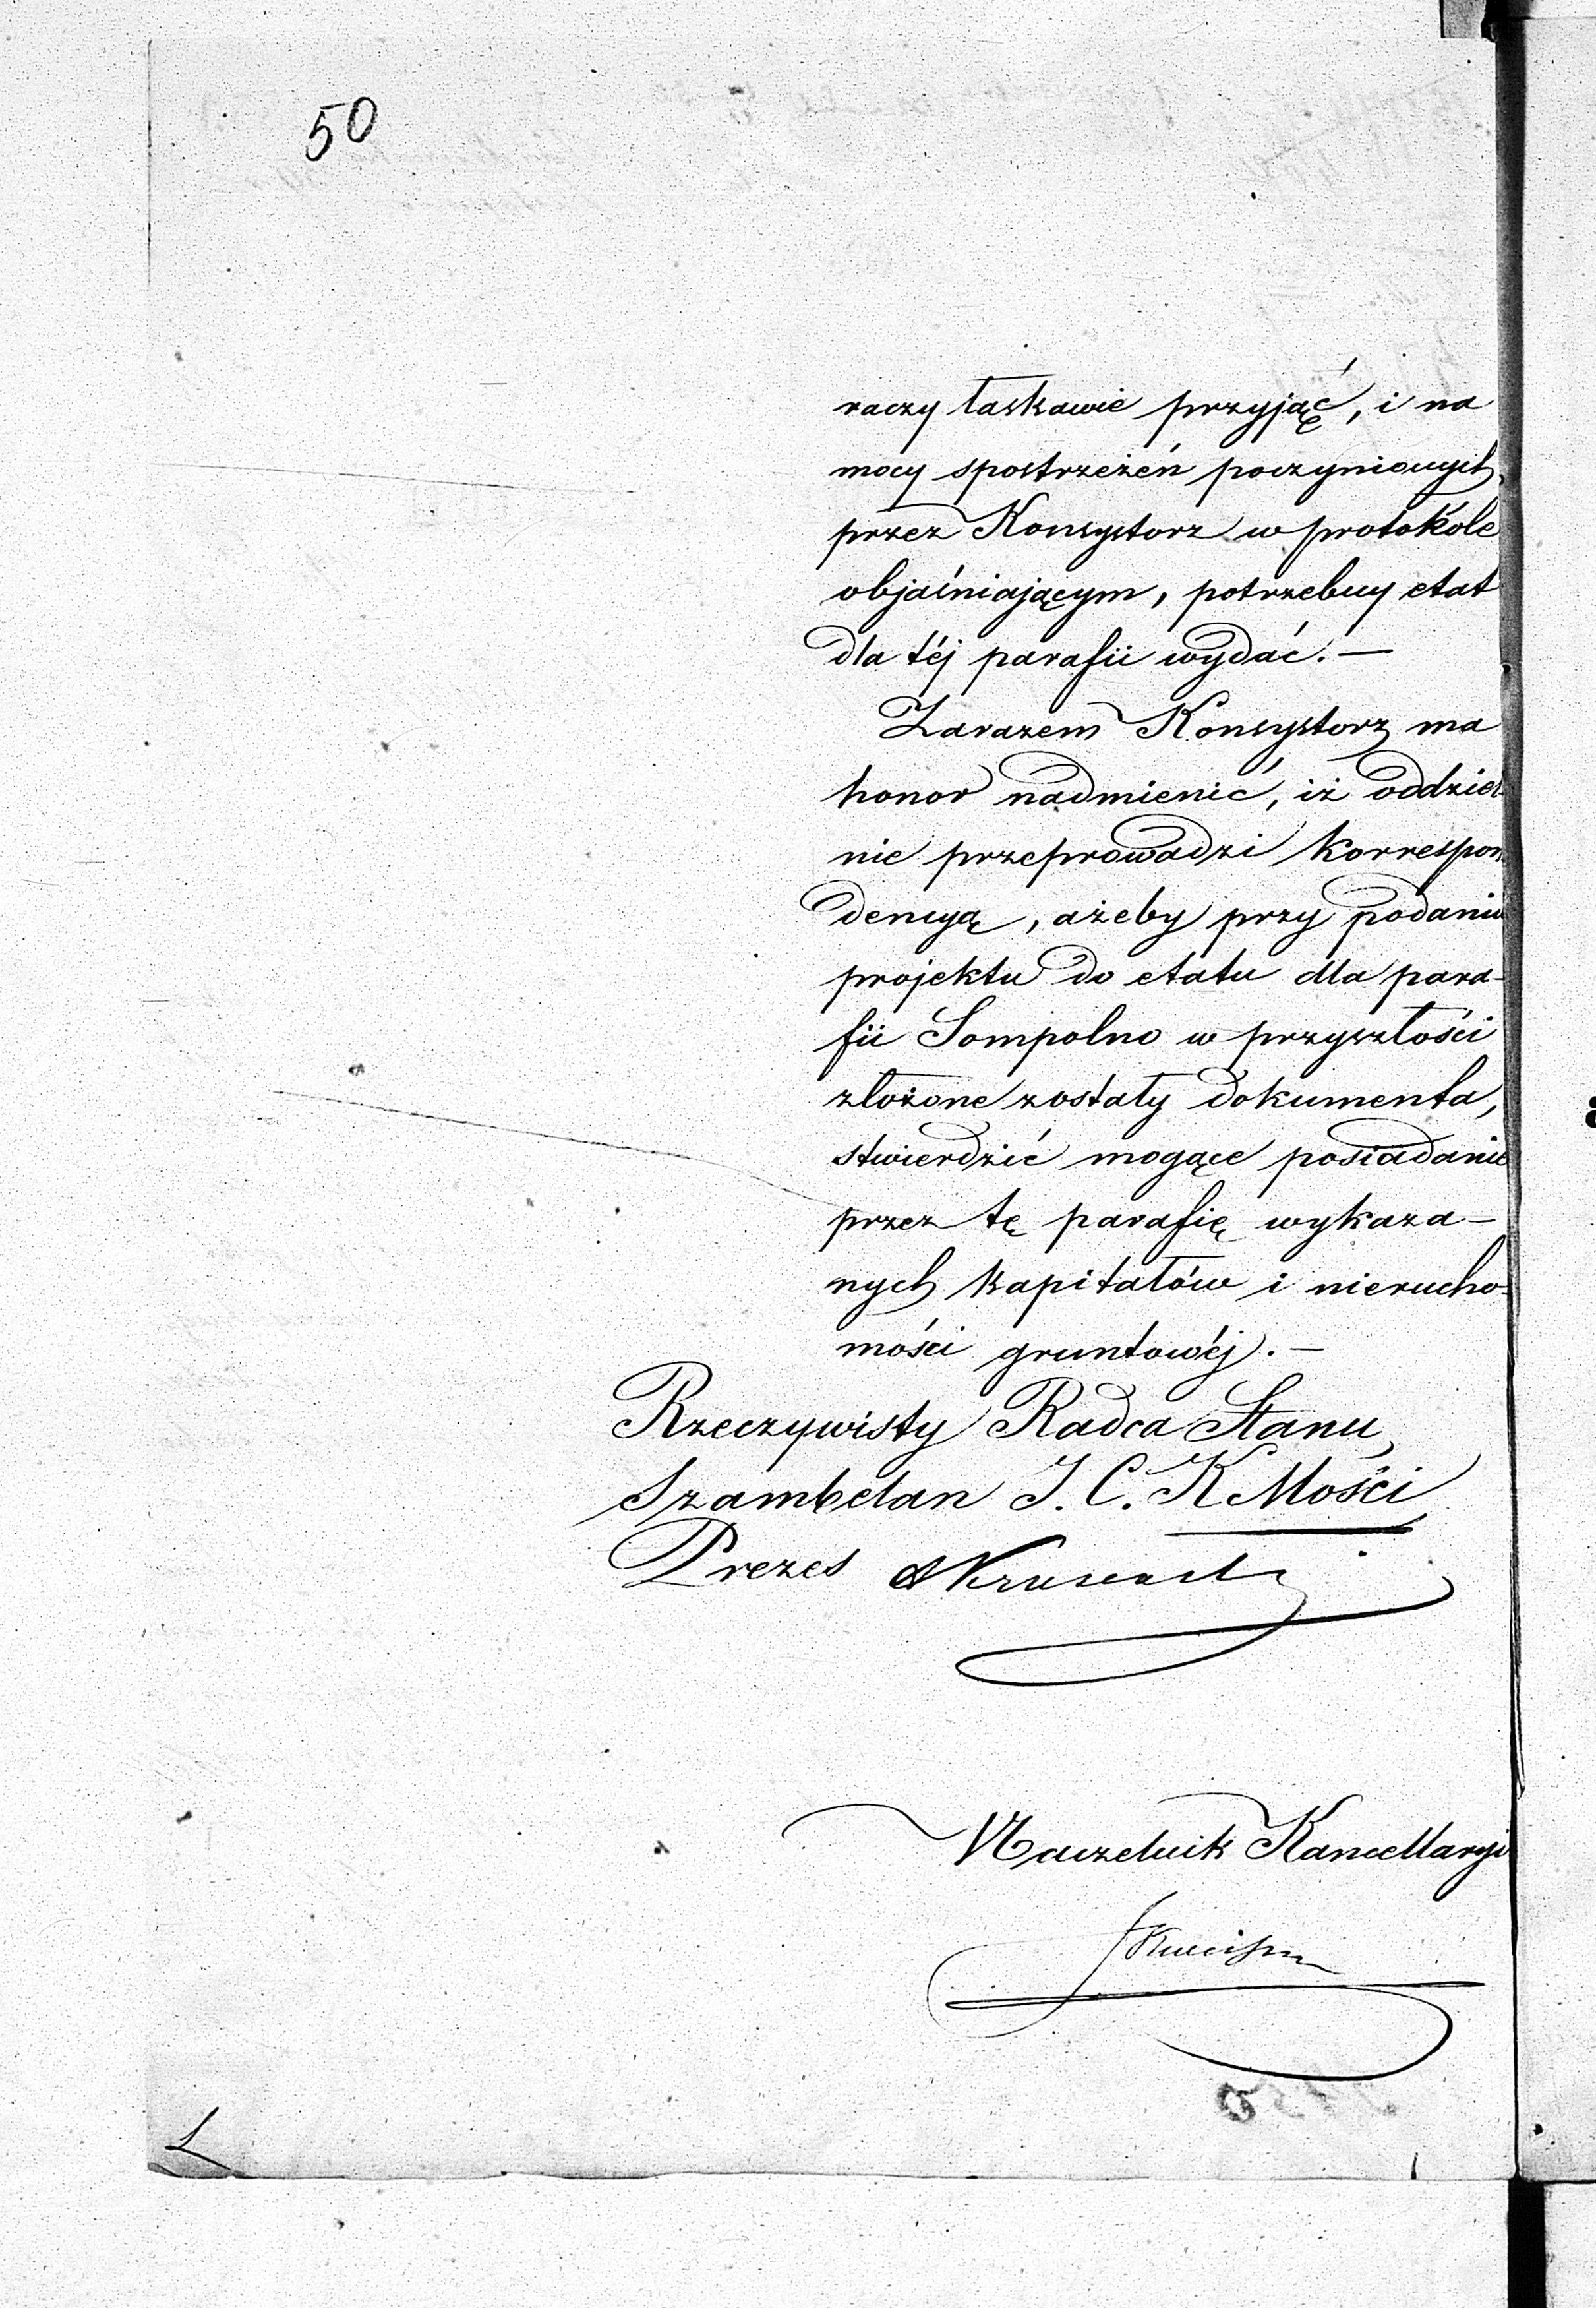 50
raczy łaskawie przyjąć, i na
mocy spostrzeżeń poczynionych
przez Konsystorz w protokóle
objaśniającym, potrzebny etat
dla téj parafii wydać. —
Zarazem Konsystorz ma
honor nadmienić, iż oddziel-
nie przeprowadzi korrespon
dencyą, ażeby przy podaniu
projektu do etatu dla para-
fii Sompolno w przyszłości
złożone zostały dokumenta,
stwierdzić mogące posiadanie
przez tę parafię wykaza-
nych kapitałów i nierucho-
mości gruntowéj. —
Rzeczywisty Radca Stanu,
Szambelan J. C. K Mości
Prezes
Naczelnik Kancellaryi